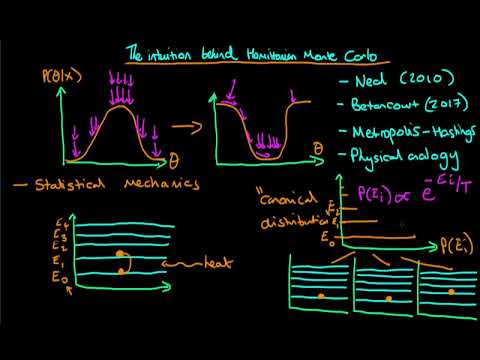 The intuition behind Hamiltonian Monte Carlo
P(θ|X)
θ
θ
- Neal (2010)
- Betancourt (2017)
- Metropolis-Hastings
- Physical analogy
- Statistical mechanics
E4
E3
E2
E1
E0
heat
"Canonical
distribution"
E2
E1
E0
P(Ei) ∝ e^-Ei/T
P(Ei)